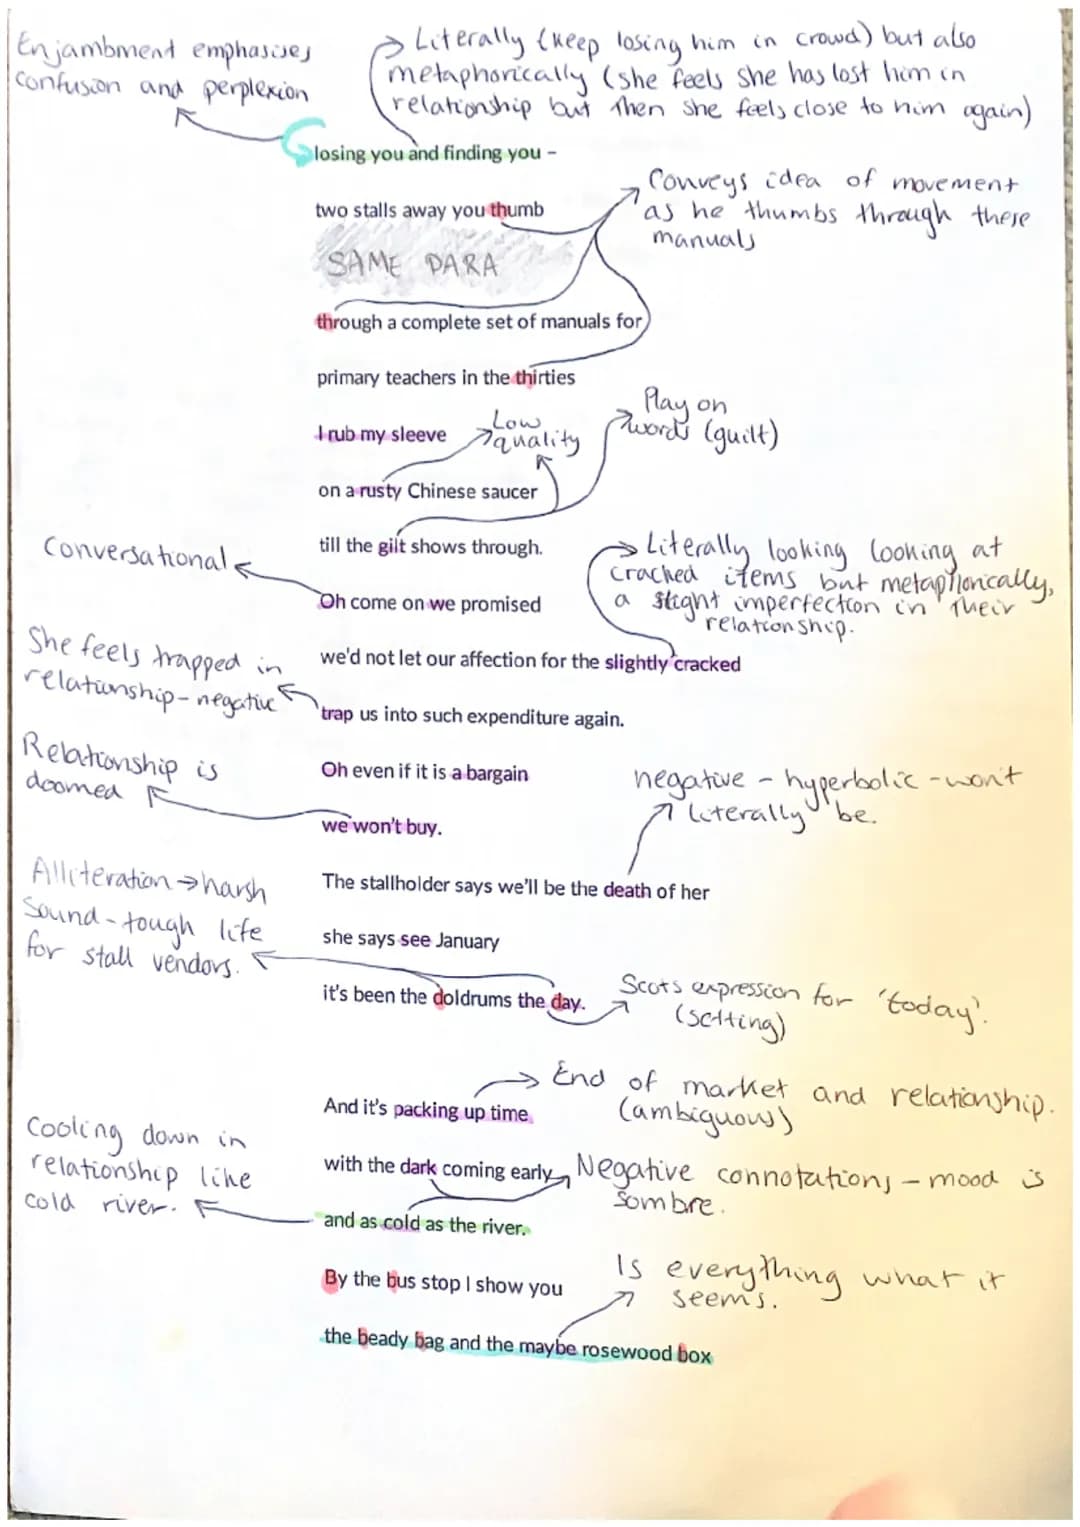 Enjambment emphasises
confusion and perplexion
Literally (keep losing him in crowd) but also
metaphorically (she feels she has lost him in
relationship but then she feels close to him again)
losing you and finding you –
two stalls away you thumb
Conveys idea of movement
as he thumbs through these
manuals
SAME PARA
through a complete set of manuals for
primary teachers in the thirties
I rub my sleeve
Low
quality
Play on
words (guilt)
on a rusty Chinese saucer
till the gilt shows through.
Conversational
Literally looking looking at
cracked items but metaphorically,
a slight imperfection in their
relationship.
Oh come on we promised
She feels trapped in
relationship - negative
we'd not let our affection for the slightly cracked
trap us into such expenditure again.
Relationship is
doomed
Oh even if it is a bargain
we won't buy.
negative - hyperbolic - won't
literally be.
Alliteration → harsh
sound - tough life
for stall vendors.
The stallholder says we'll be the death of her
she says see January
it's been the doldrums the day.
Scots expression for 'today'.
(setting)
End of market and relationship.
(ambiguous)
And it's packing up time
Cooling down in
relationship like
cold river.
with the dark coming early
Negative connotations - mood is
sombre.
and as cold as the river.
By the bus stop I show you
Is everything what it
seems.
the beady bag and the maybe rosewood box